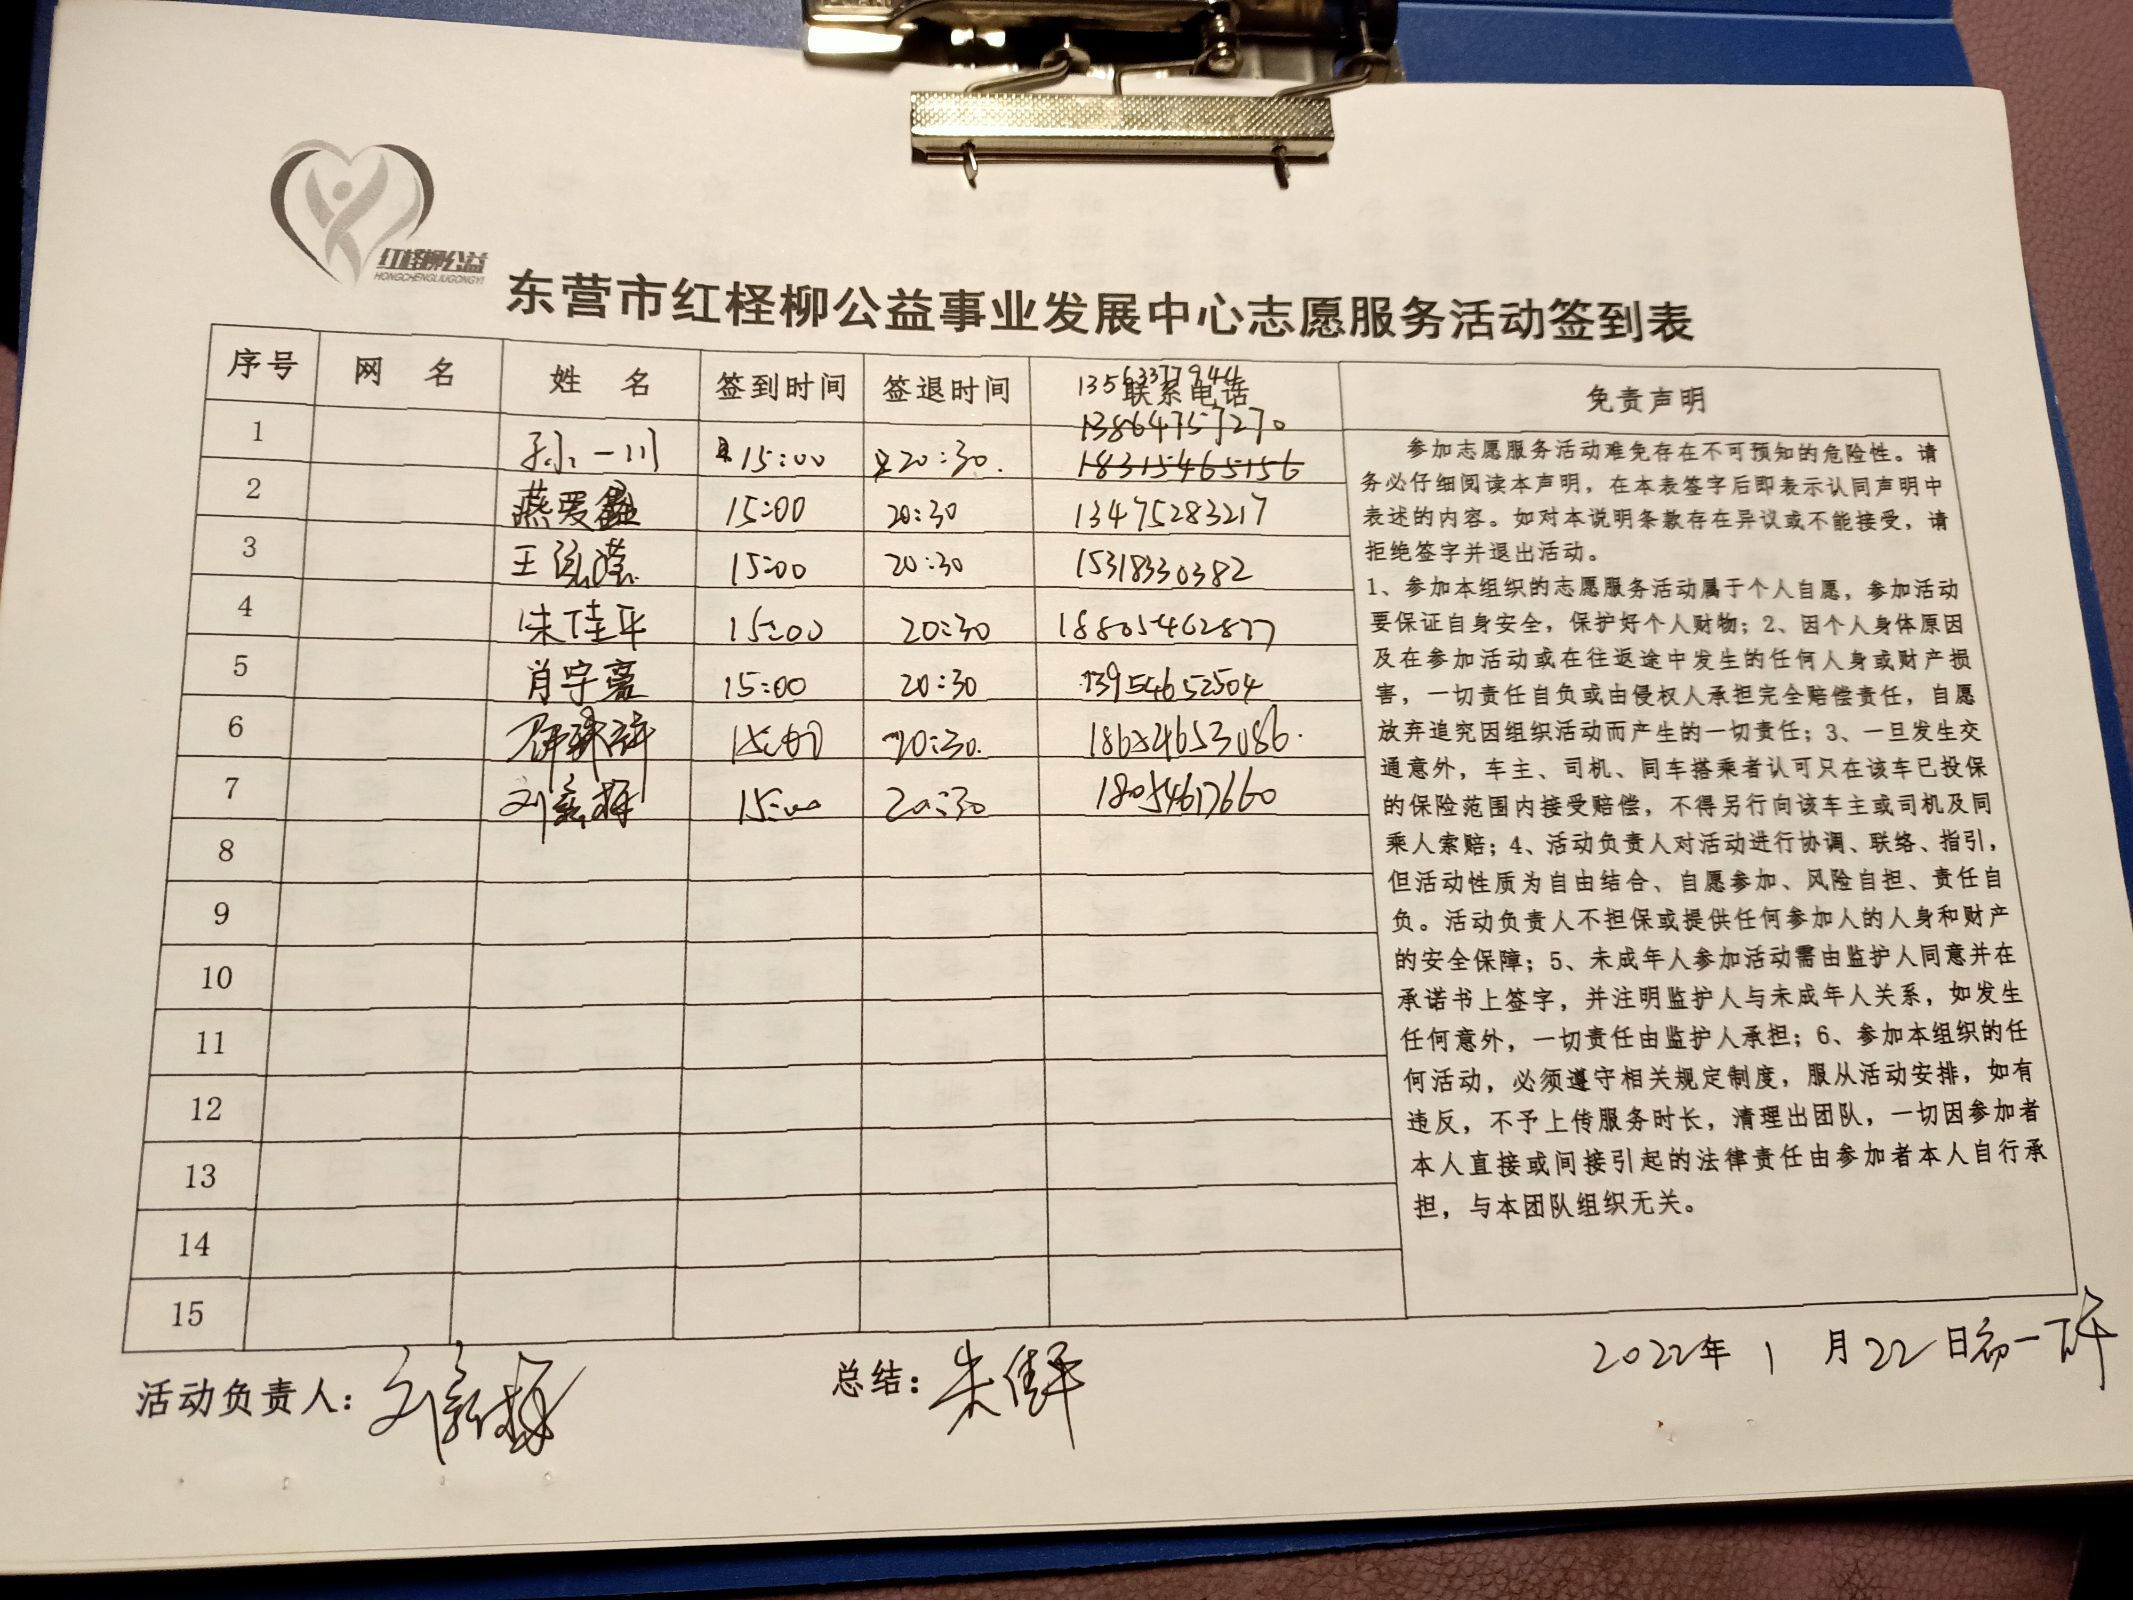 红柽柳公益
HONGCHENGLIUGONGYI
东营市红柽柳公益事业发展中心志愿服务活动签到表
序号 网 名 姓 名 签到时间 签退时间 联系电话 免责声明
13563377944
13864757270
1 孙一川 15:00 20:30 18315465156
2 燕爱 15:00 20:30 13475283217
3 王 15:00 20:30 15318330382
4 朱佳平 15:00 20:30 18805462877
5 肖宇 15:00 20:30 13954652504
6 15:00 20:30 18654653086
7 刘 15:00 20:30 18054617660
8
9
10
11
12
13
14
15
参加志愿服务活动难免存在不可预知的危险性。请
务必仔细阅读本声明，在本表签字后即表示认同声明中
表述的内容。如对本说明条款存在异议或不能接受，请
拒绝签字并退出活动。
1、参加本组织的志愿服务活动属于个人自愿，参加活动
要保证自身安全，保护好个人财物；2、因个人身体原因
及在参加活动或在往返途中发生的任何人身或财产损
害，一切责任自负或由侵权人承担完全赔偿责任，自愿
放弃追究因组织活动而产生的一切责任；3、一旦发生交
通意外，车主、司机、同车搭乘者认可只在该车已投保
的保险范围内接受赔偿，不得另行向该车主或司机及同
乘人索赔；4、活动负责人对活动进行协调、联络、指引，
但活动性质为自由结合、自愿参加、风险自担、责任自
负。活动负责人不担保或提供任何参加人的人身和财产
的安全保障；5、未成年人参加活动需由监护人同意并在
承诺书上签字，并注明监护人与未成年人关系，如发生
任何意外，一切责任由监护人承担；6、参加本组织的任
何活动，必须遵守相关规定制度，服从活动安排，如有
违反，不予上传服务时长，清理出团队，一切因参加者
本人直接或间接引起的法律责任由参加者本人自行承
担，与本团队组织无关。
活动负责人： 刘 总结：朱佳平 2022年 1 月22日初一下午